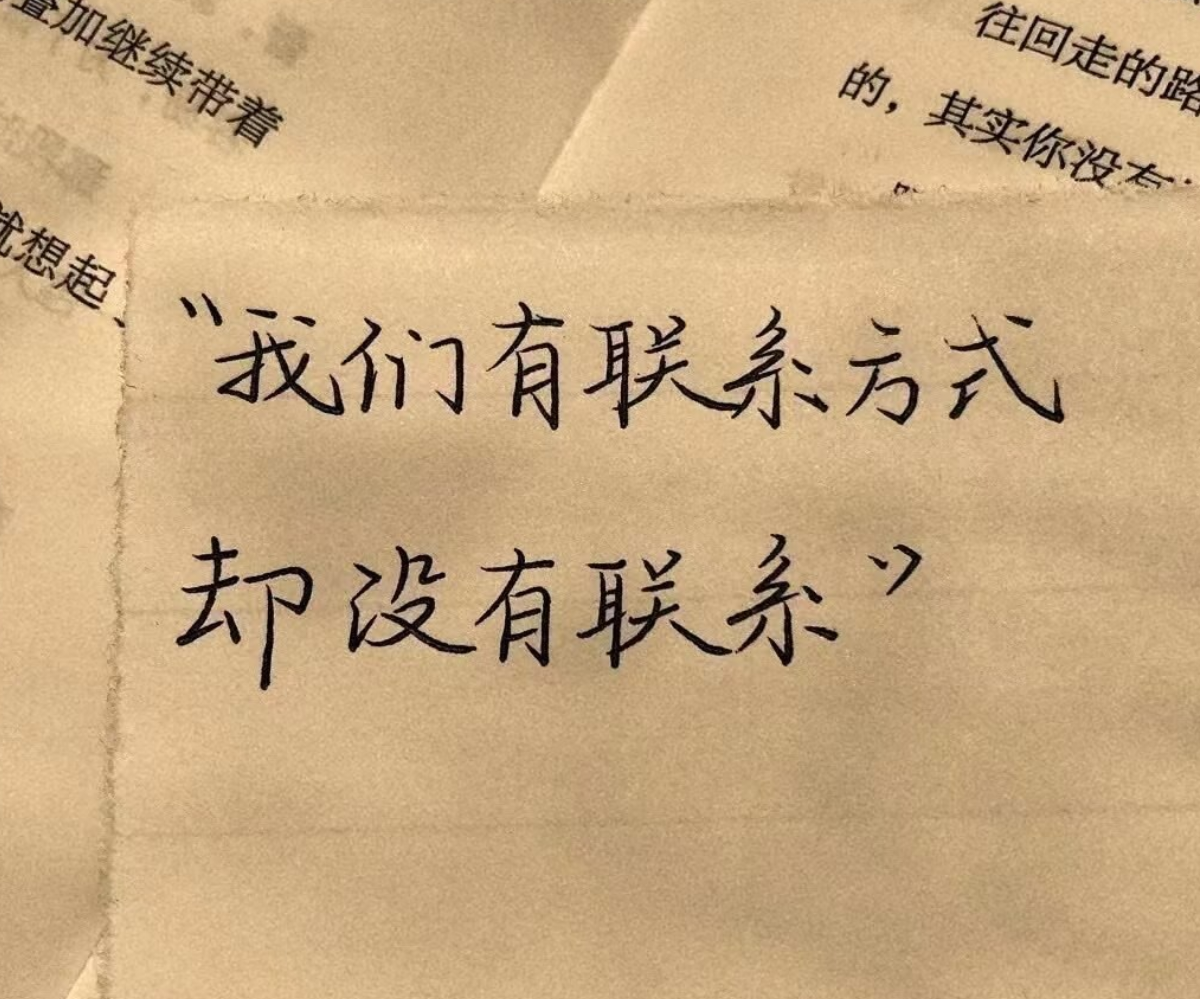 叠加继续带着
就想起、
往回走的路
的，其实你没有
“我们有联系方式
却没有联系”